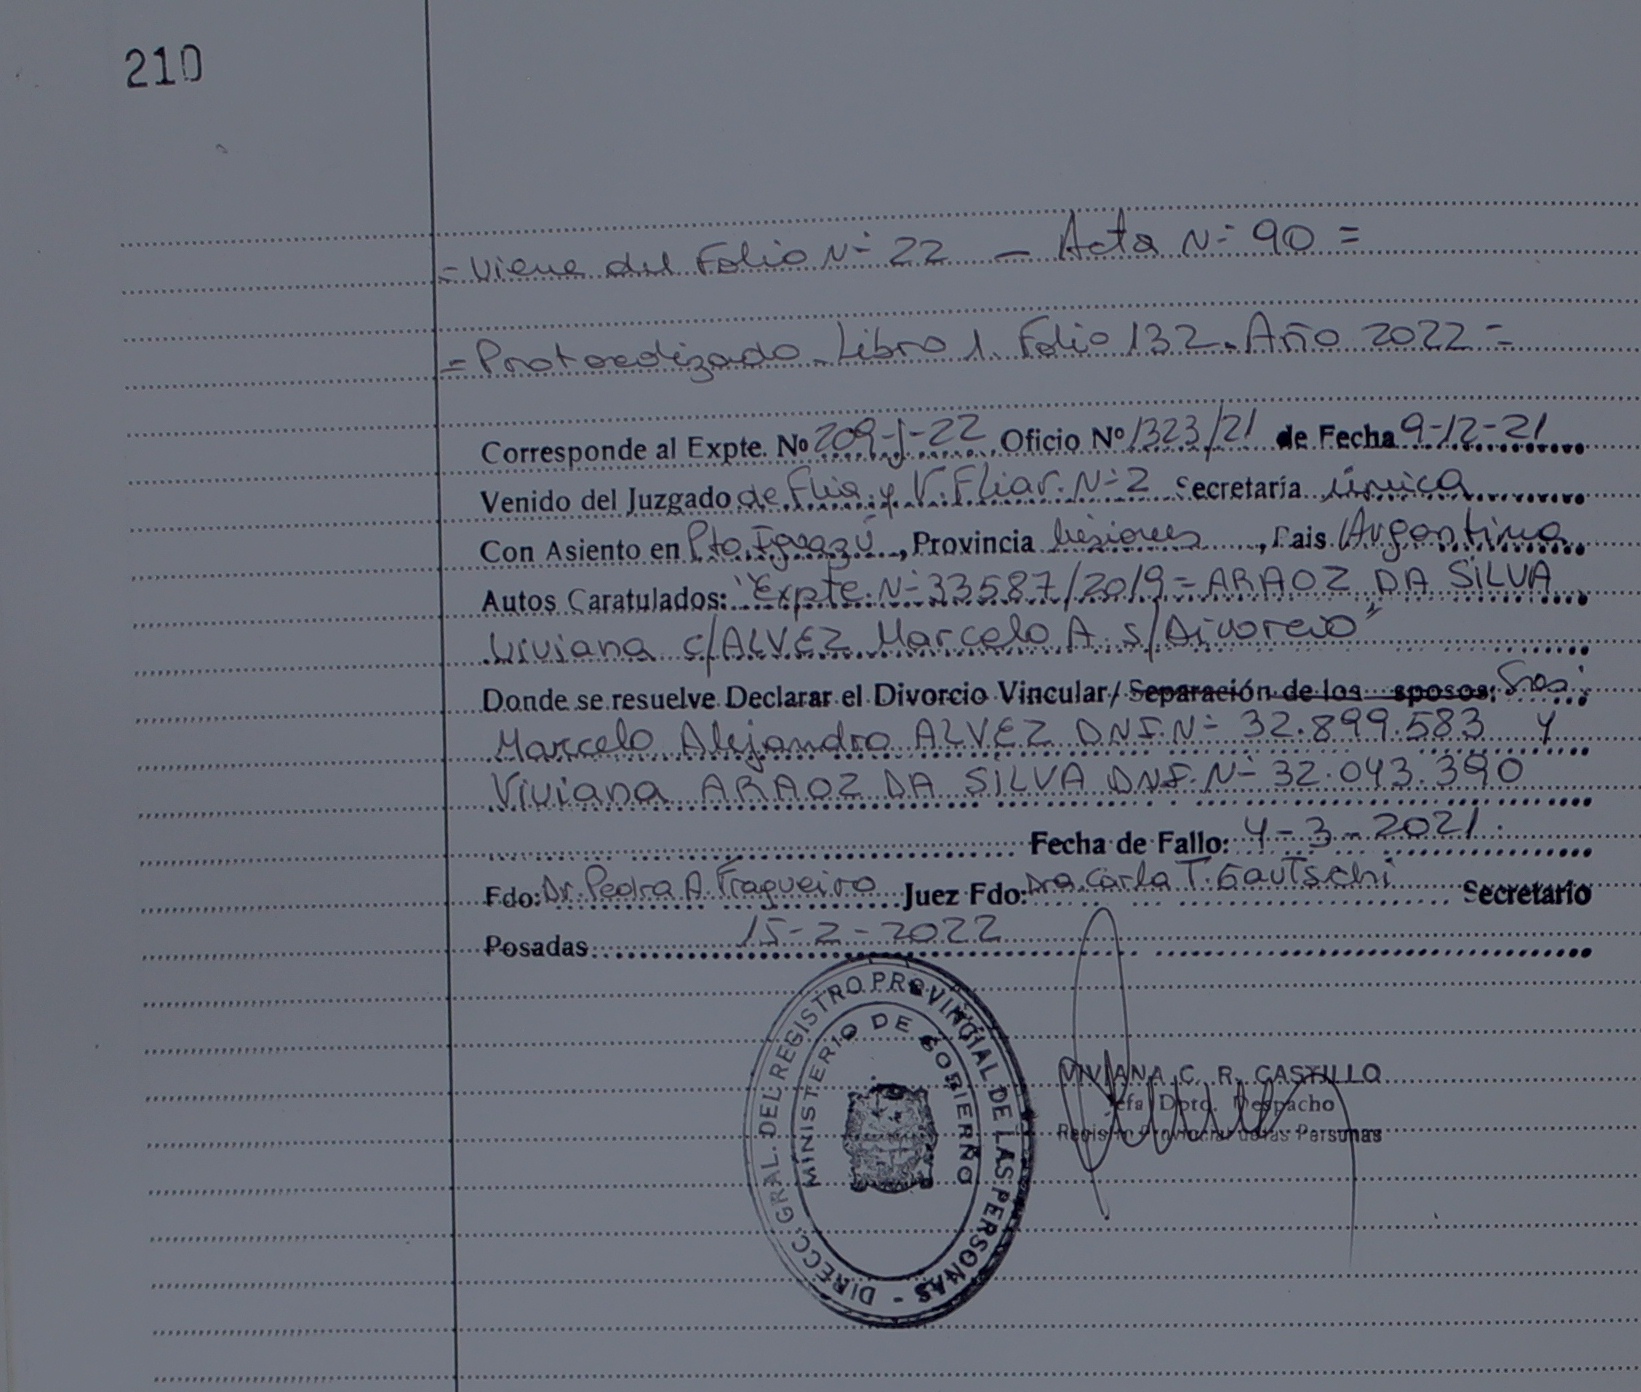 210
= Viene del Folio N° 22 — Acta N° 90 =
= Protocolizado - Libro 1. Folio 132. Año 2022 =
Corresponde al Expte. Nº 209-J-22 Oficio Nº 1323/21 de Fecha 9-12-21
Venido del Juzgado de Flia. y V. Fliar. N° 2 Secretaría única
Con Asiento en Pto. Iguazú, Provincia Misiones, Pais Argentina
Autos Caratulados: "Expte. N° 33587/2019 = ARAOZ DA SILVA
Viviana c/ALVEZ Marcelo A. s/Divorcio"
Donde se resuelve Declarar el Divorcio Vincular/ Separación de los sposos: Sres:
Marcelo Alejandro ALVEZ DNI. N° 32.899.583 y
Viviana ARAOZ DA SILVA DNI. N° 32.043.390
Fecha de Fallo: 4-3-2021.
Fdo: Dr. Pedro A. Fragueiro Juez Fdo: Dra. Carla T. Gautschi Secretario
Posadas 15-2-2022
DIRECC. GRAL. DEL REGISTRO PROVINCIAL DE LAS PERSONAS -
MINISTERIO DE GOBIERNO
VIVIANA C. R. CASTILLO
Jefa Dpto. Despacho
Registro Provincial de las Personas